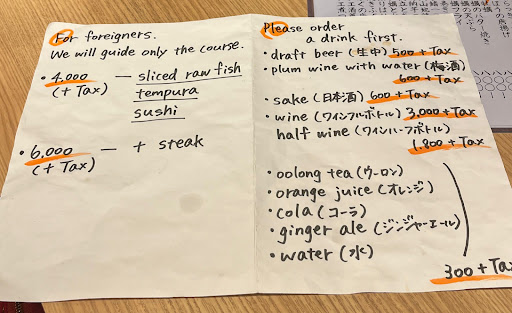 For foreigners.
We will guide only the course.
• 4,000 — sliced raw fish
(+ Tax) tempura
sushi
• 6,000 — + steak
(+ Tax)
Please order
a drink first.
• draft beer (生中) 500 + Tax
• plum wine with water (梅酒)
600 + Tax
• sake (日本酒) 600 + Tax
• wine (ワインフルボトル) 3,000 + Tax
half wine (ワインハーフボトル)
1,800 + Tax
• oolong tea (ウーロン)
• orange juice (オレンジ)
• cola (コーラ)
• ginger ale (ジンジャーエール)
• water (水)
300 + Tax